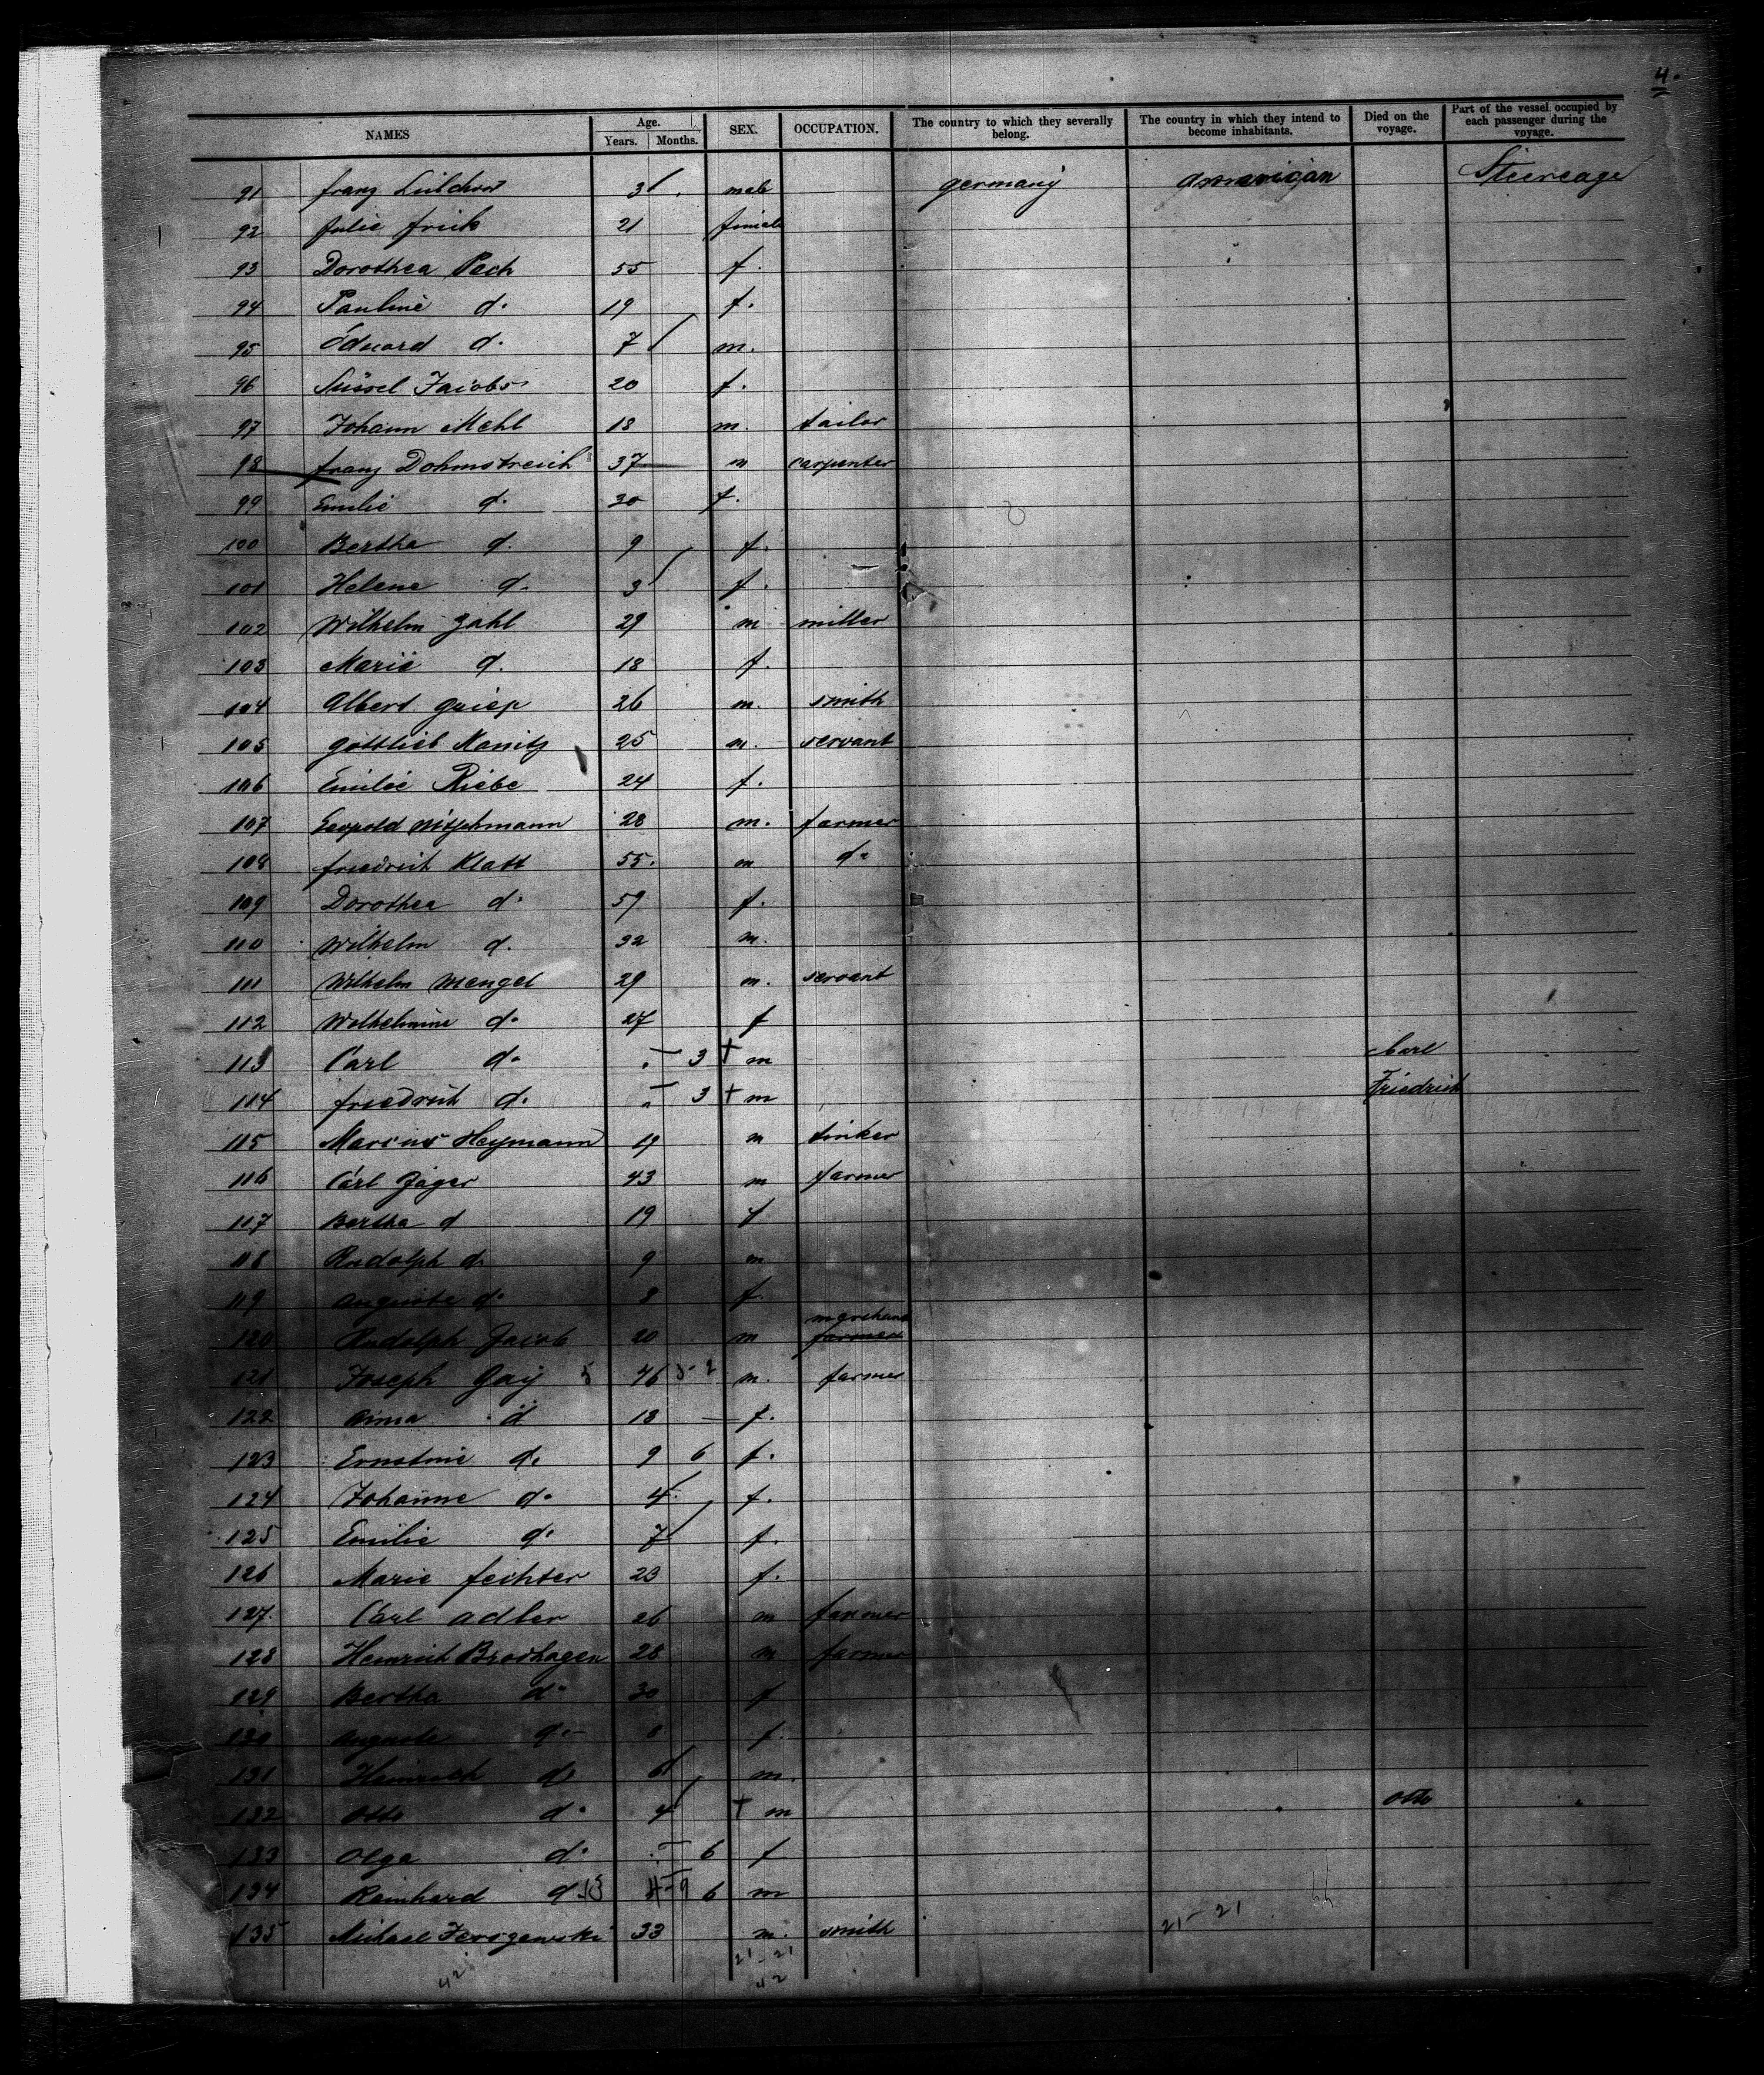 4.
NAMES Age. Years. Months. SEX. OCCUPATION. The country to which they severally belong. The country in which they intend to become inhabitants. Died on the voyage. Part of the vessel occupied by each passenger during the voyage.
91 franz 3 male germany american Steereage
92 Julie frick 21 female
93 Dorothea Pech 55 f.
94 Pauline do 19 f.
95 Eduard do 7 m.
96 Jacobs 20 f.
97 Johann Mehl 18 m. tailor
98 franz Dohmstreich 37 m carpenter
99 Emilie do 30 f.
100 Bertha do 9 f.
101 Helene do 3 f.
102 Wilhelm Zahl 29 m miller
103 Marie do 18 f.
104 Albert griep 26 m. smith
105 gottlieb Kanitz 25 m. servant
106 Emilie Riebe 24 f.
107 Leopold Witzchmann 28 m. farmer
108 friedrich Klatt 55. m do
109 Dorothea do 59 f.
110 Wilhelm do 32 m.
111 Wilhelm Wengel 29 m. servant
112 Wilhelmine do 27 f
113 Carl do 3 + m Carl
114 friedrich do 3 + m Friedrich
115 Marcus Heymann 19 m tinker
116 Carl Jäger 43 m farmer
117 Bertha d 19 f
118 Rudolph do 9 m
119 Auguste do 8 f.
120 Rudolph Jacob 20 m merchant farmer
121 Joseph Gay 46 m. farmer
122 Anna d 13 f.
123 Ernstine do 9 6 f.
124 Johanne do 4 f.
125 Emilie do 7 f.
126 Marie fechter 23 f.
127. Carl Adler 26 m farmer
128 Heinrich Brodhagen 28 m farmer
129 Bertha do 30 f
130 Auguste do 8 f.
131 Heinrich do 6 m.
132 Otto do 4 + m Otto
133 Olga do 6 f
134 Reinhard do 6 m
135 Michael 33 m. smith 21-21
42 21-21
42